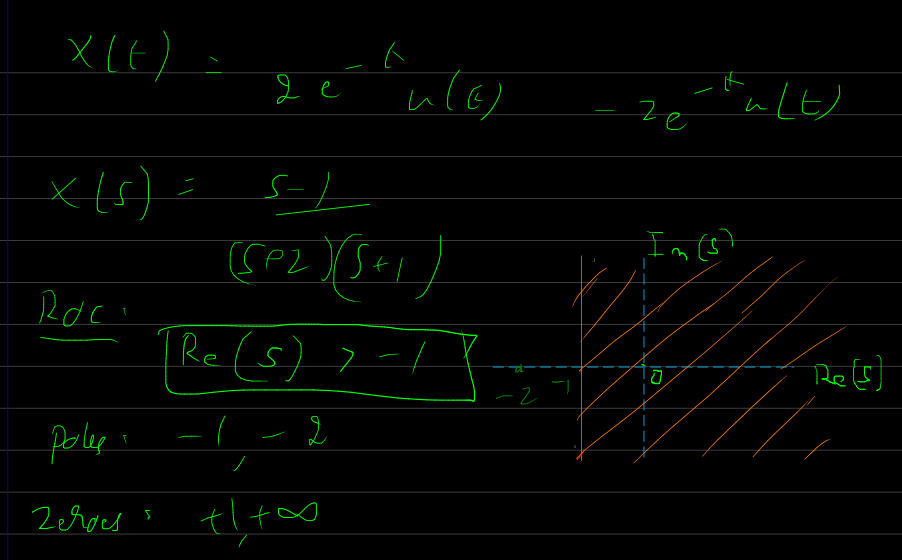 X(t) = 2e^{-t} u(t) - 2e^{-t} u(t)
X(s) = \frac{s-1}{(s+2)(s+1)}
Roc:
Re(s) > -1
Poles: -1, -2
Zeroes: +1, +∞
Im(s)
-2 -1 0 Re(s)